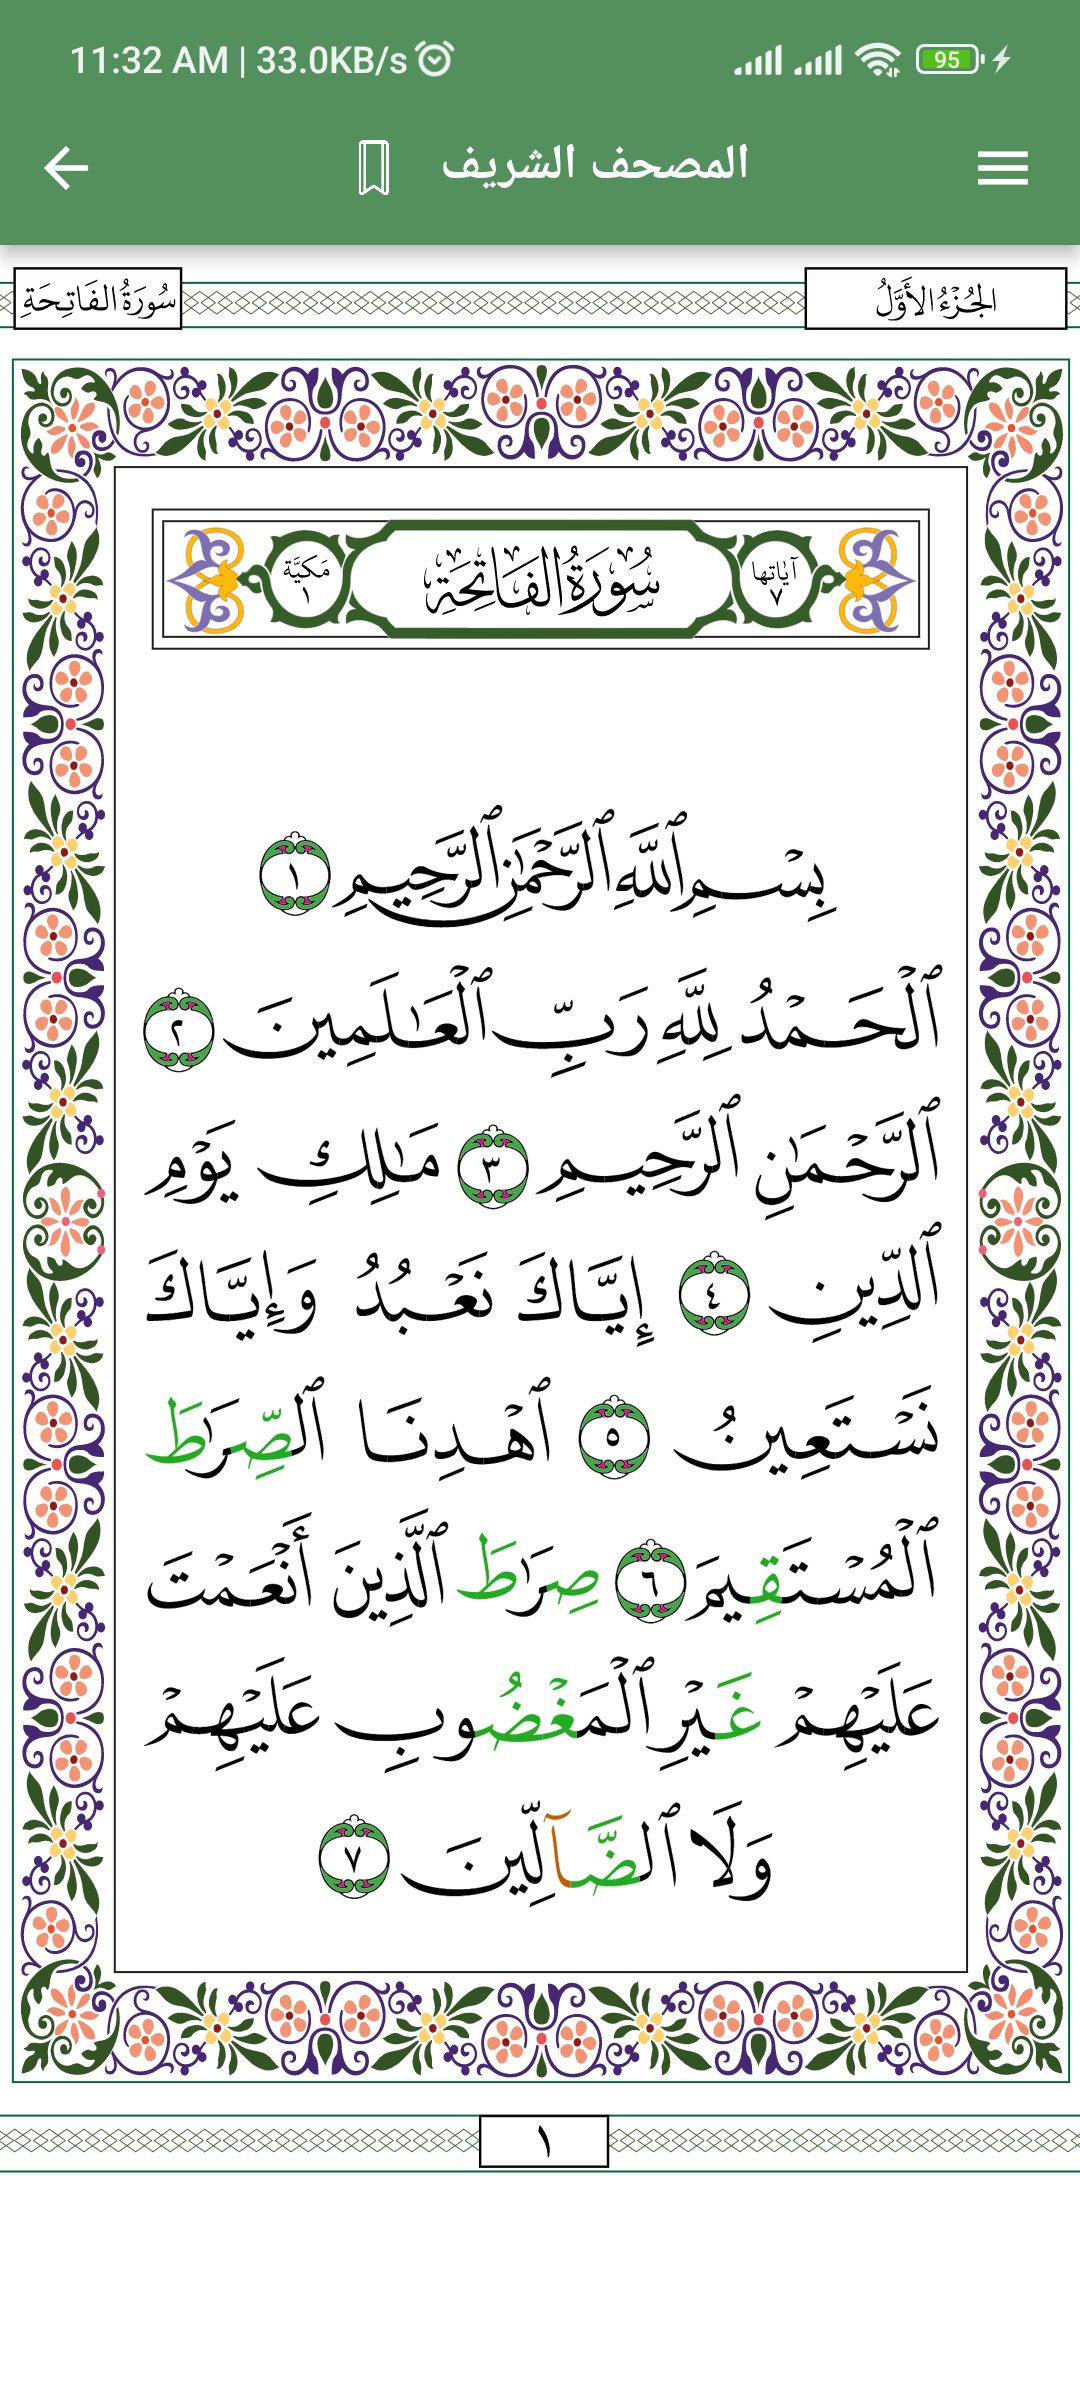 11:32 AM | 33.0KB/s 95
المصحف الشريف
الجُزْءُ الأَوَّلُ سُورَةُ الفَاتِحَةِ
آيَاتُها ٧ سُورَةُ الفَاتِحَةِ مَكِيَّة ١
بِسْمِ ٱللَّهِ ٱلرَّحْمَٰنِ ٱلرَّحِيمِ ١
ٱلْحَمْدُ لِلَّهِ رَبِّ ٱلْعَٰلَمِينَ ٢
ٱلرَّحْمَٰنِ ٱلرَّحِيمِ ٣ مَٰلِكِ يَوْمِ
ٱلدِّينِ ٤ إِيَّاكَ نَعْبُدُ وَإِيَّاكَ
نَسْتَعِينُ ٥ ٱهْدِنَا ٱلصِّرَٰطَ
ٱلْمُسْتَقِيمَ ٦ صِرَٰطَ ٱلَّذِينَ أَنْعَمْتَ
عَلَيْهِمْ غَيْرِ ٱلْمَغْضُوبِ عَلَيْهِمْ
وَلَا ٱلضَّآلِّينَ ٧
١